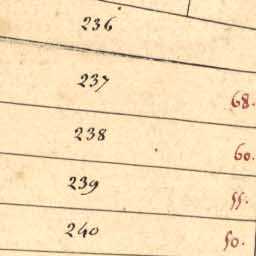 236
237
68.
238
60.
239
55.
240
50.